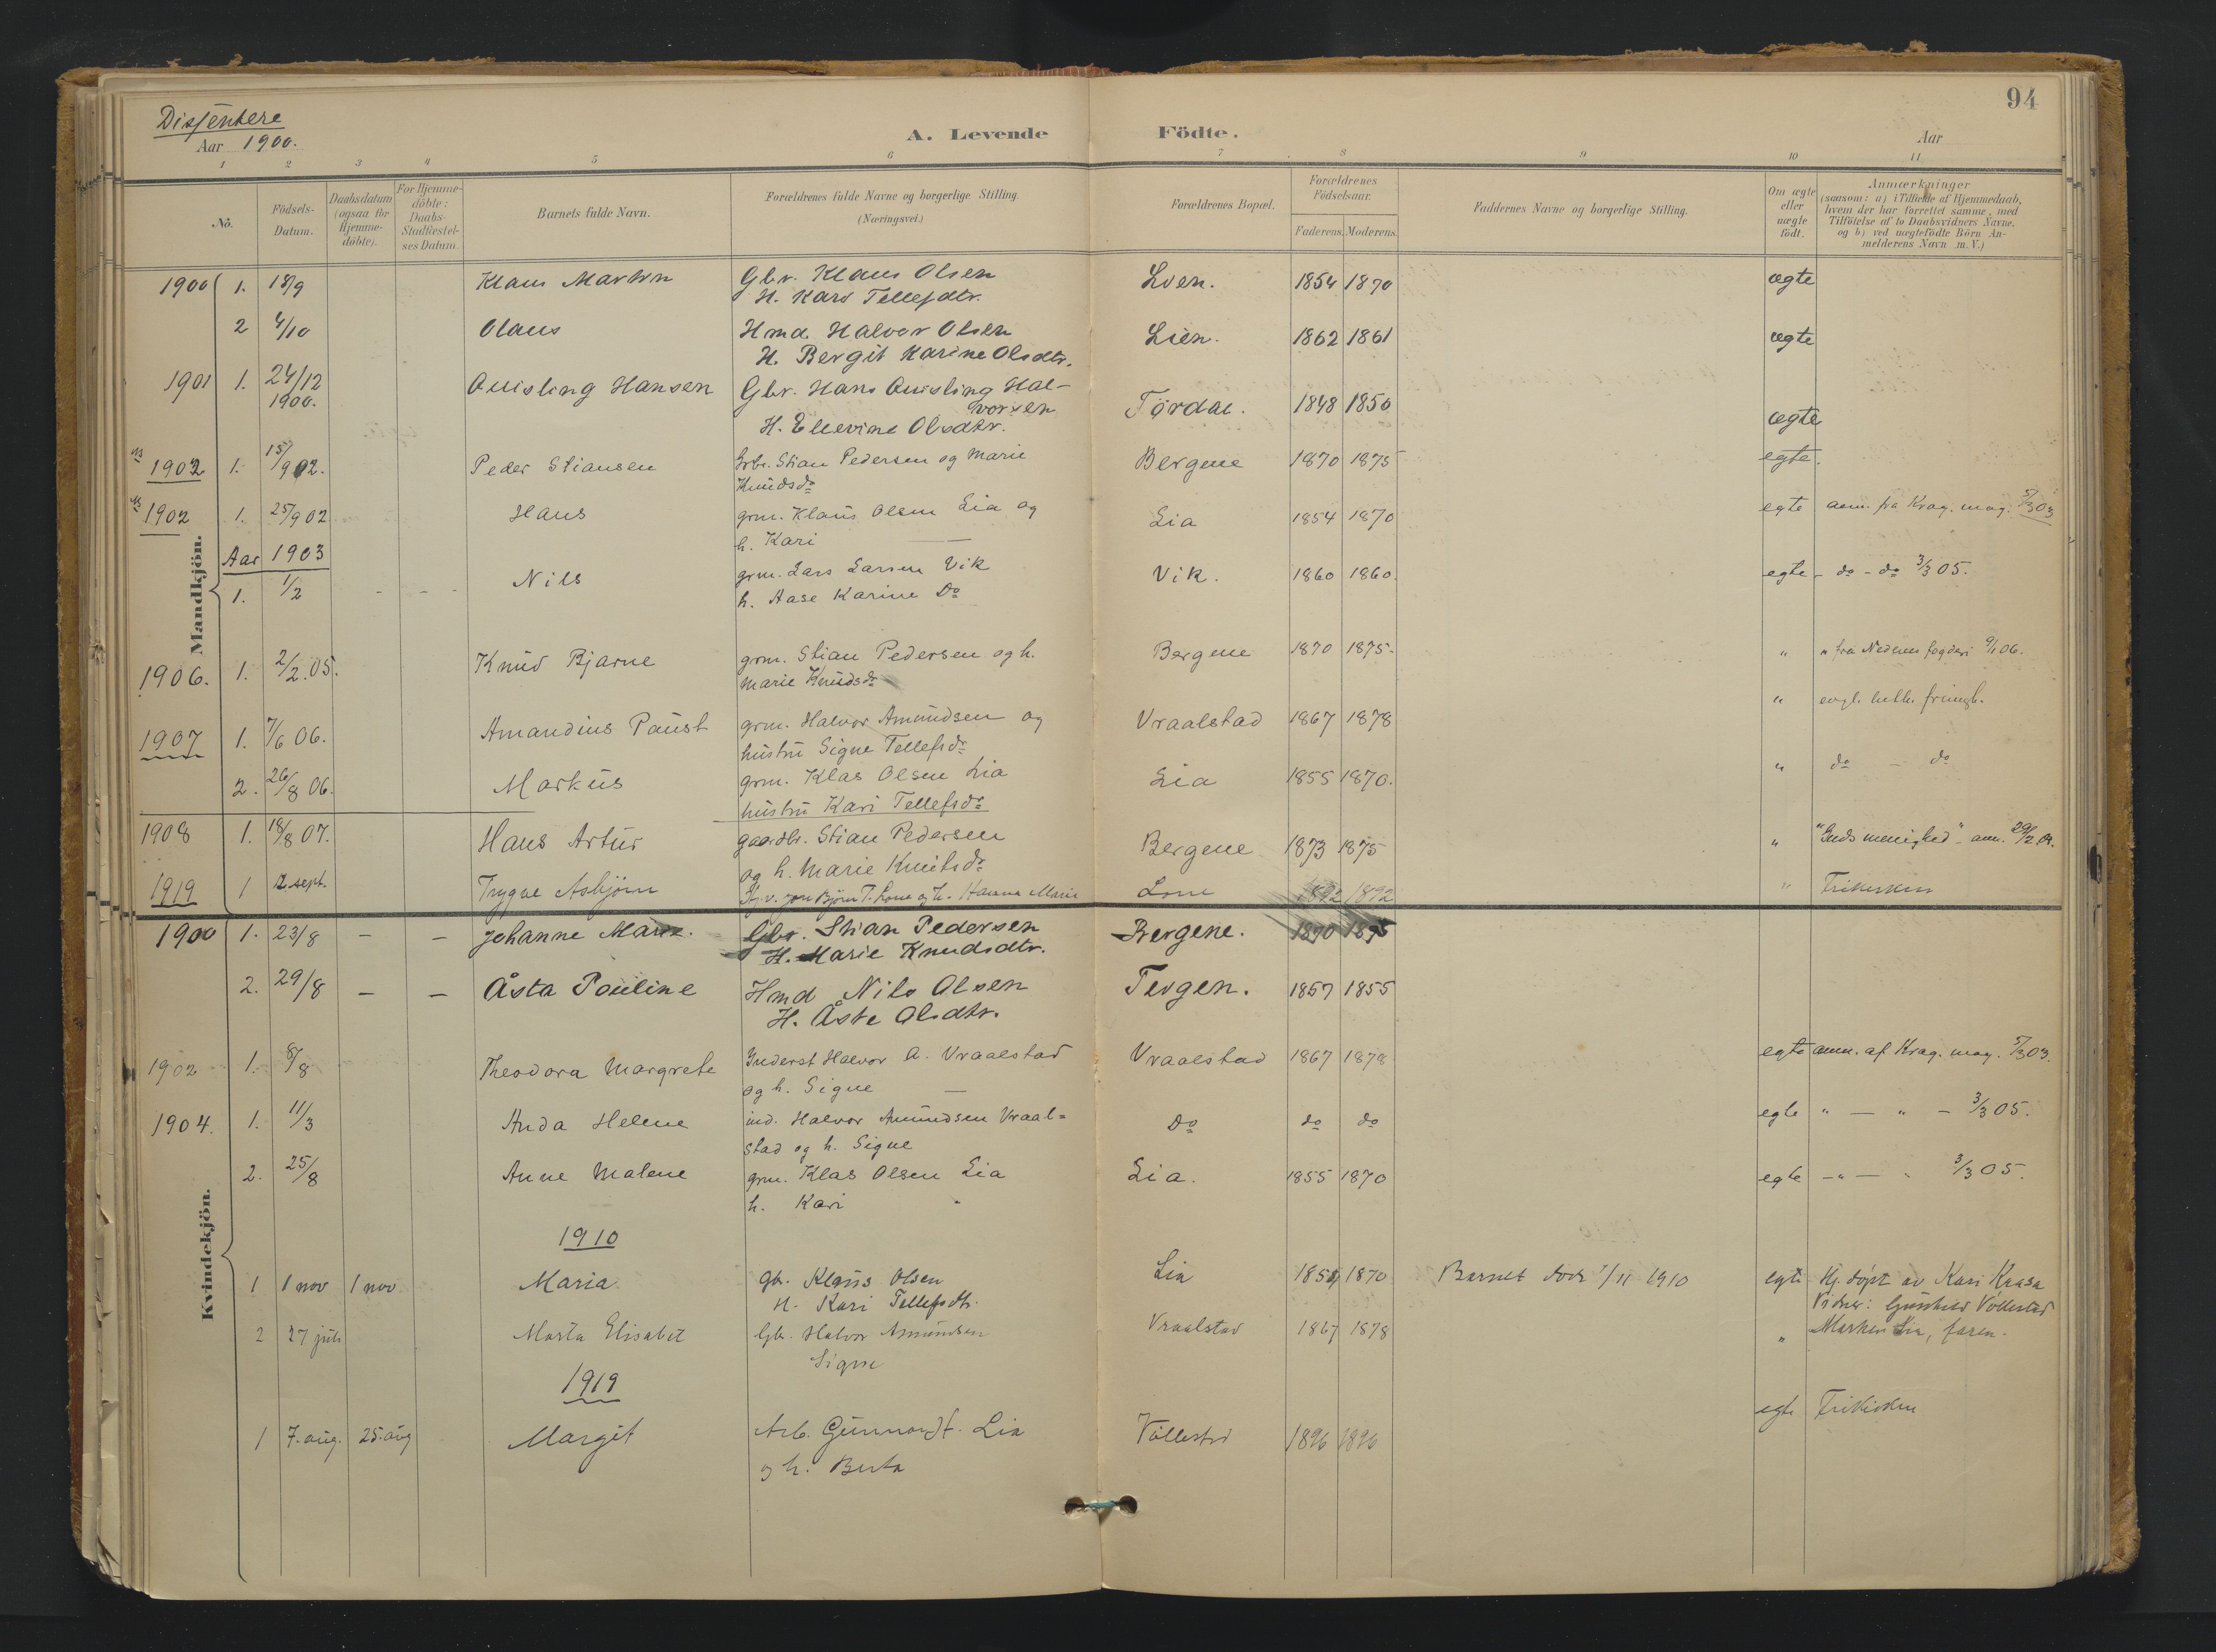 94
Dissentere
Aar 1900.
A. Levende Födte.
Aar
1 2 3 4 5 6 7 8 9 10 11
No.
Födsels-Datum.
Daabsdatum (ogsaa for Hjemme-döbte).
For Hjemme-döbte: Daabs-Stadfæstel-ses Datum.
Barnets fulde Navn.
Forældrenes fulde Navne og borgerlige Stilling.
(Næringsvei.)
Forældrenes Bopæl.
Forældrenes Födselsaar.
Faderens. Moderens.
Faddernes Navne og borgerlige Stilling.
Om ægte eller uægte födt.
Anmærkninger
(saasom: a) i Tilfælde af Hjemmedaab,
hvem der har forrettet samme, med
Tilföielse af to Daabsvidners Navne,
og b) ved uægtefödte Börn An-
melderens Navn m. V.)
Mandkjön.
1900 1. 18/9 Klaus Martin Gbr. Klaus Olsen Lien. 1854 1870 ægte
H. Kari Tellefsdtr.
2 4/10 Olaus Hmd. Halvor Olsen Lien. 1862 1861 ægte
H. Bergit Karine Olsdtr.
1901 1. 24/12 Quisling Hansen Gbr. Hans Quisling Hal-
1900. vorsen Tørdal. 1848 1850 ægte
H. Ellevine Olsdtr.
1902 1. 15/9 02. Peder Stiansen Grbr. Stian Pedersen og Marie Bergene 1870 1875 egte.
Knudsdr
1902 1. 25/9 02 Hans grm. Klaus Olsen Lia og Lia 1854 1870 egte anm. fra Krag. mag. 5/3 03
h. Kari —
Aar 1903
1. 1/2 - - - Nils grm. Lars Larsen Vik Vik. 1860 1860. egte - do - do 3/3 05.
h. Aase Karine Do
1906. 1. 2/2.05. Knud Bjarne grm. Stian Pedersen og h. Bergene 1870 1875. " " fra Nedenes fogderi 9/1 06.
Marie Knudsdr
1907 1. 7/6 06. Amandius Paust grm. Halvor Amundsen og Vraalstad 1867 1878 " evgl. luth. frimgh.
hustru Signe Tellefsdr
2. 26/8 06. Markus grm. Klas Olsen Lia Lia 1855 1870. " do — do
hustru Kari Tellefsdr
1908 1. 18/8 07. Hans Artur gaardbr. Stian Pedersen Bergene 1873 1875 " "Guds menighed" - anm. 29/2 08.
og h. Marie Knutsdr
1919 1 12 sept. Trygve Asbjørn Jon Bjørn T. Lone og h. Hanna Marie Lone 1892 1892 " Frikirken
Kvindekjön.
1900 1. 23/8 — — Johanne Marie. Gbr. Stian Pedersen Bergene. 1870 1875
H. Marie Knudsdtr.
2. 29/8 — — Åsta Pouline Hmd Nils Olsen Teigen. 1857 1855
H. Åste Olsdtr.
1902 1. 8/8 Theodora Margrete Inderst Halvor A. Vraalstad Vraalstad 1867 1878 egte anm. af Krag. mag. 5/3 03.
og h. Signe —
1904. 1. 11/3 Anda Helene ind. Halvor Amundsen Vraal= Do do do egte " — " — 3/3 05.
stad og h. Signe
2. 25/8 Anne Malene grm. Klas Olsen Lia Lia. 1855 1870 egte — " — " 3/3 05.
h. Kari "
1910
1 1 nov 1 nov. Maria Gb. Klaus Olsen Lia 1854 1870 Barnet døde 1/11 1910 egte Hj. døpt av Kari Kraasa
H. Kari Tellefsdtr. Vidner: Gunhild Vøllestad
2 27 juli Marta Elisabet Gb. Halvor Amundsen Vraalstad 1867 1878 " Marken Lia, faren.
Signe
1919
1 7. aug. 25. aug Margit Arb. Gunnar T. Lia Vøllestad 1896 1896 egte Frikirken
og h. Berta